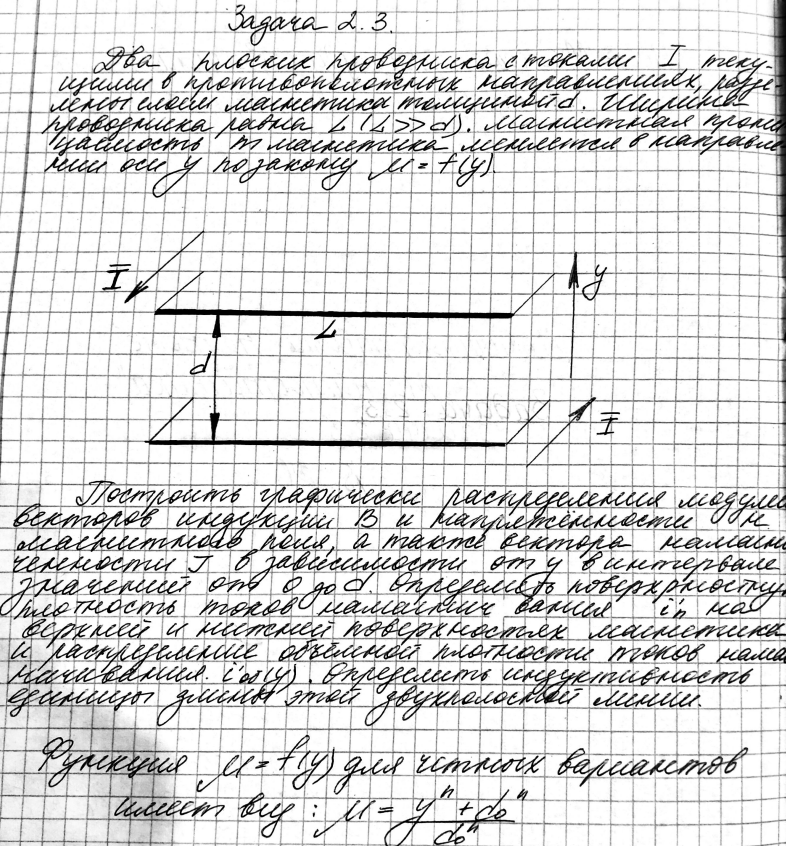 Задача 2.3.
Два плоских проводника с токами I, теку-
щими в противоположных направлениях, разде-
лены слоем магнетика толщиной d. Ширина
проводника равна L (L>>d). Магнитная прони
цаемость магнетика меняется в направле
нии оси y по закону μ = f(y).
I
y
L
d
I
Построить графически распределения модулей
векторов индукции B и напряжённости H
магнитного поля, а также вектора намагни
ченности J в зависимости от y в интервале
значений от 0 до d. Определить поверхностную
плотность токов намагничивания i'п на
верхней и нижней поверхностях магнетика
и распределение объемной плотности токов нама
ничивания i'об(y). Определить индуктивность
единицы длины этой двухполосной линии.
Функция μ = f(y) для четных вариантов
имеет вид: μ = (y^n + d₀^n) / d₀^n